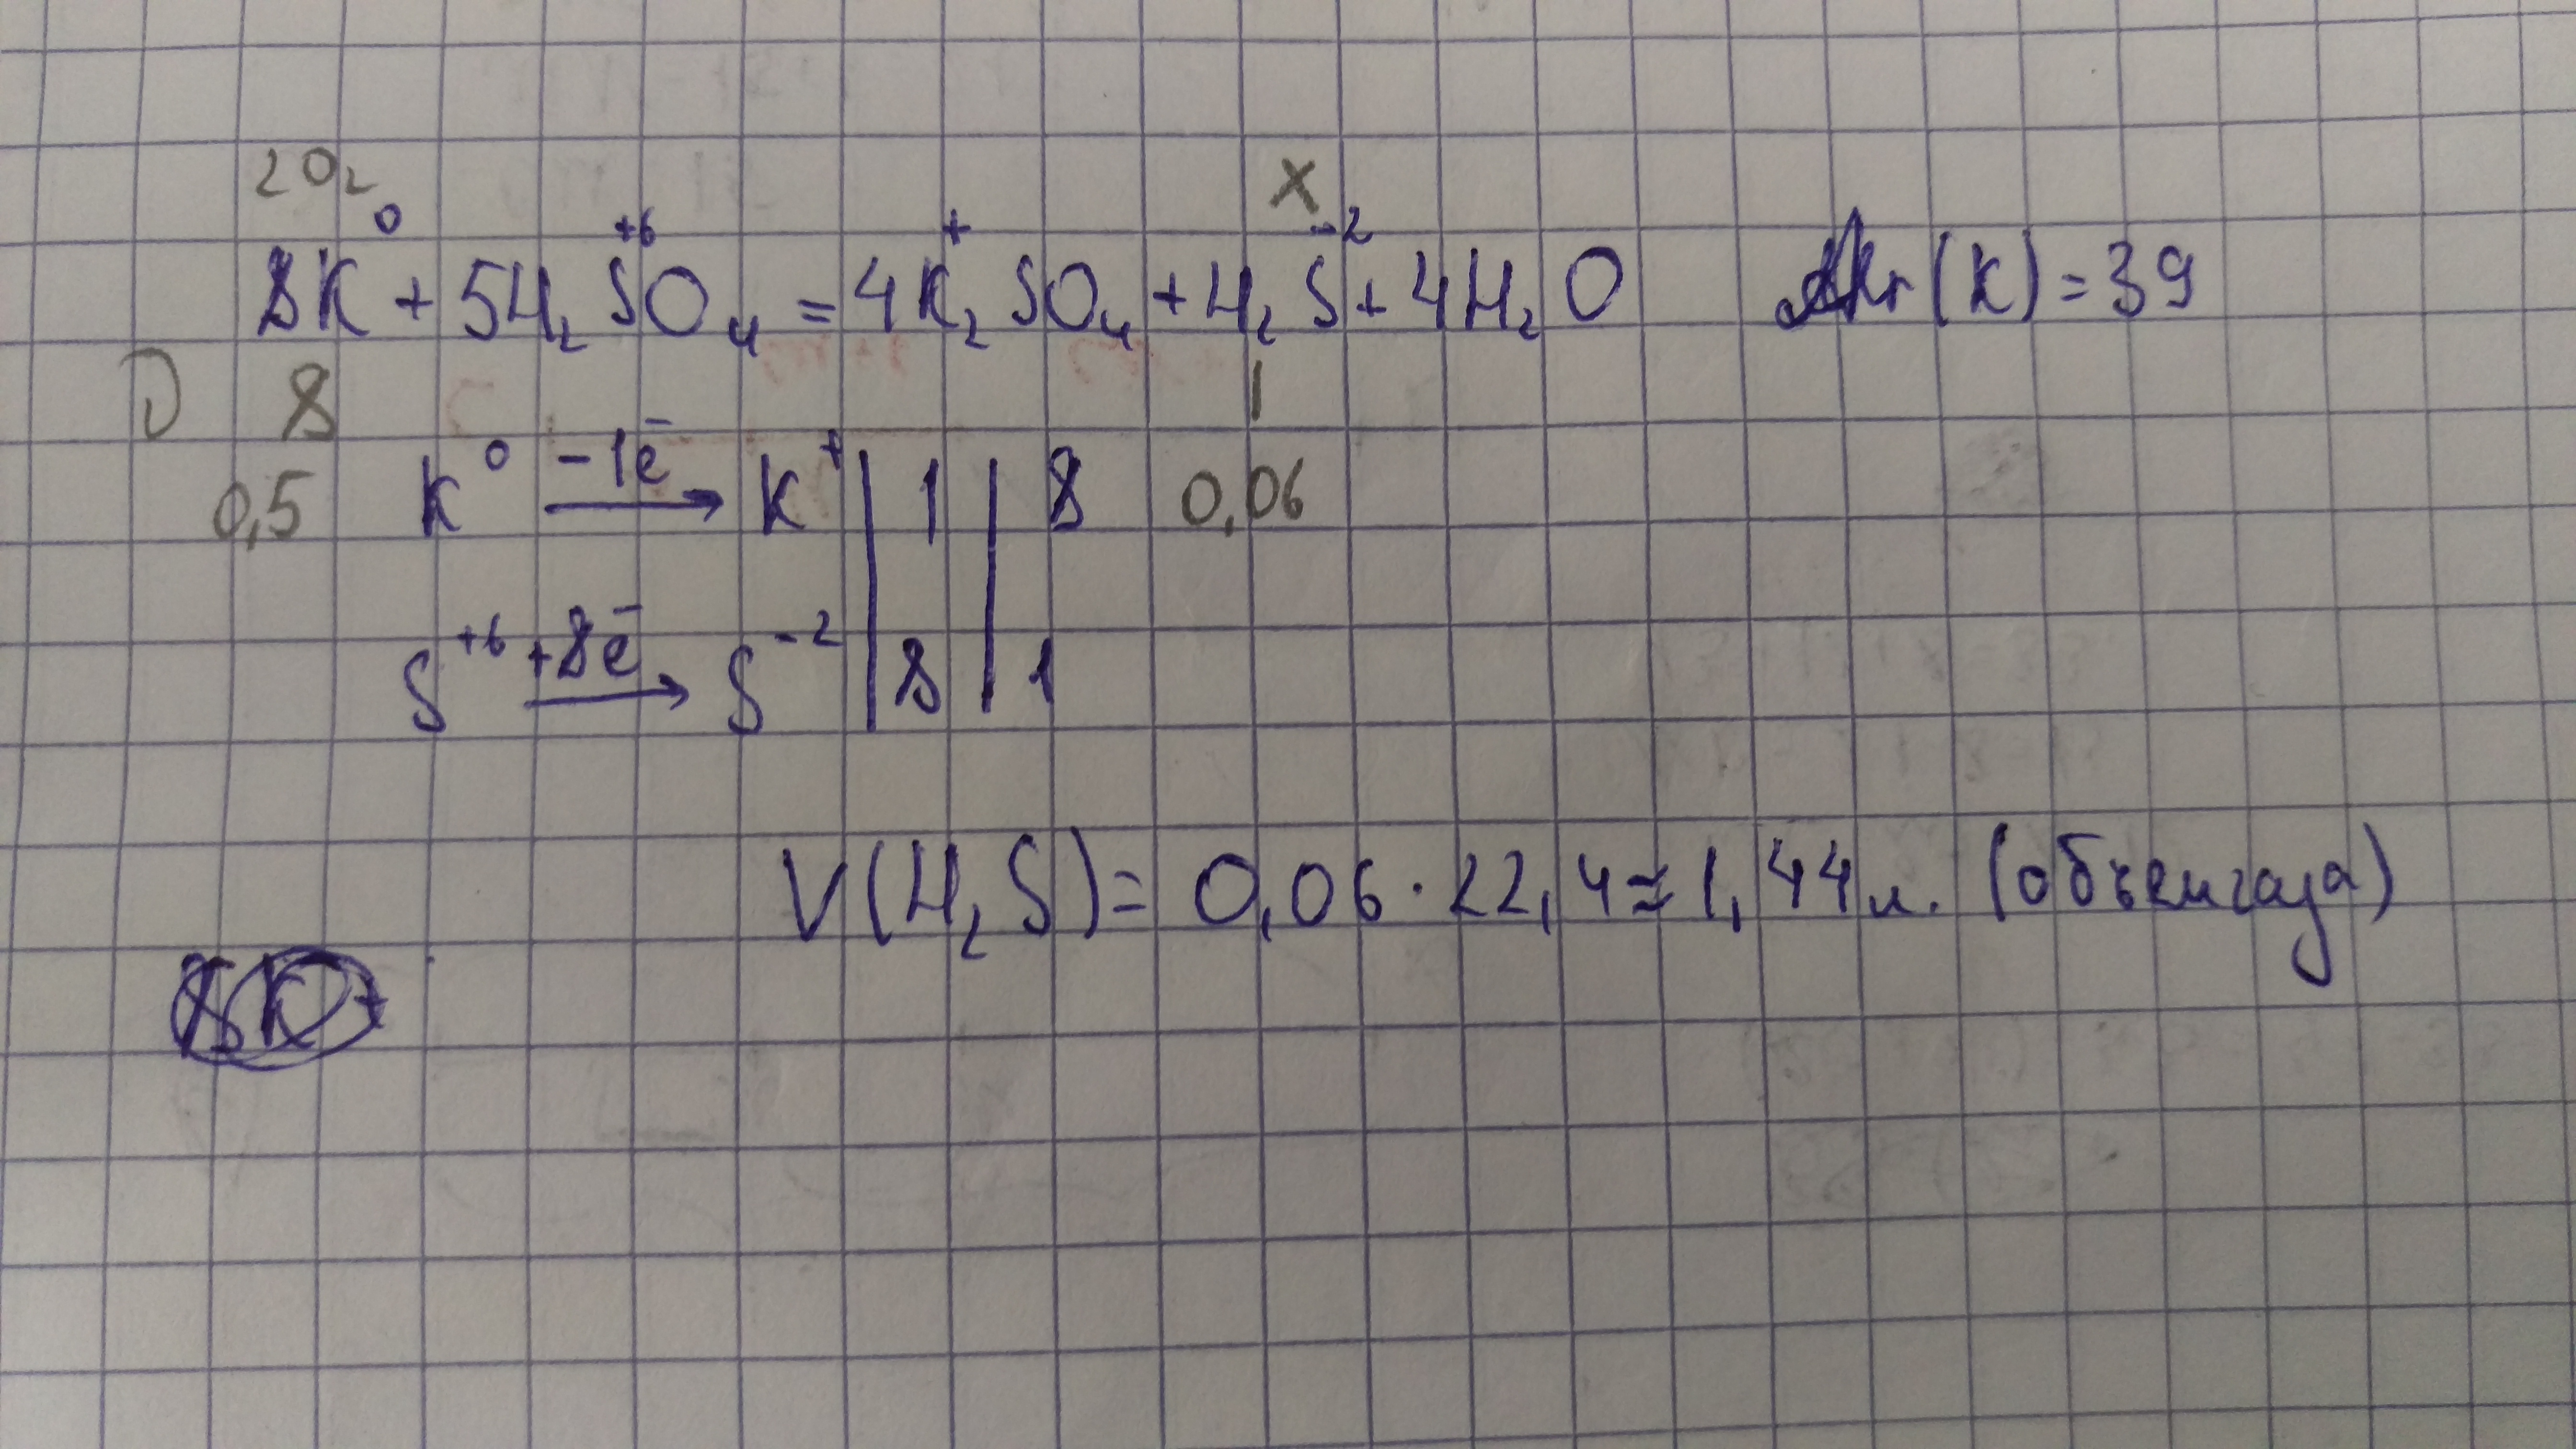 20г
0 +6 + x -2
8K + 5H₂SO₄ = 4K₂SO₄ + H₂S + 4H₂O Mr(K) = 39
ν 8 1
0,5 K⁰ −1ē → K⁺ | 1 | 8 0,06
S⁺⁶ +8ē → S⁻² | 8 | 1
V(H₂S) = 0,06 · 22,4 ≈ 1,44 л. (объем газа)